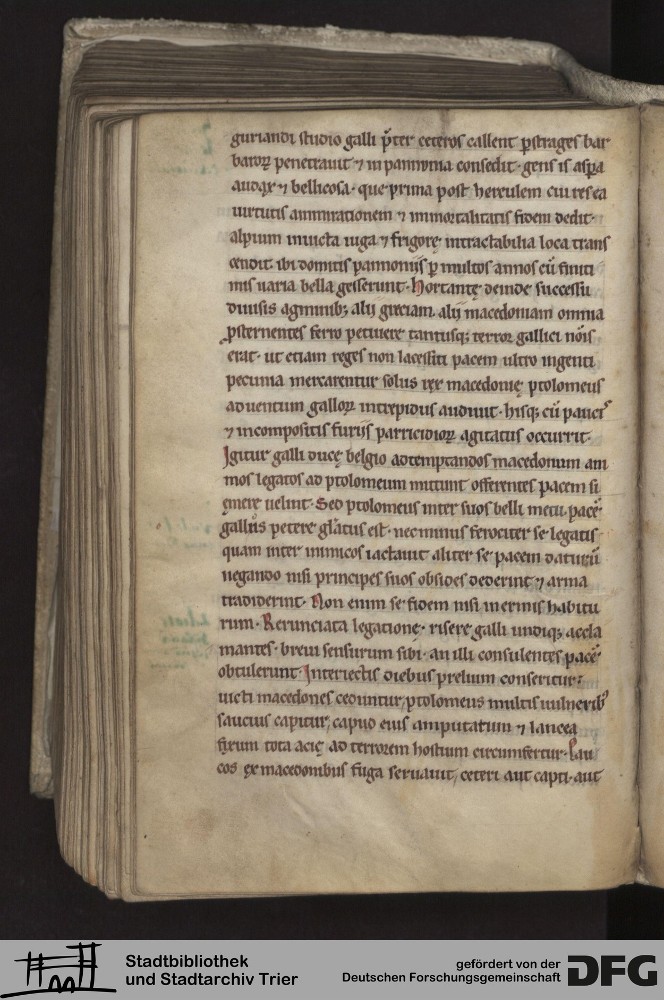 guriandi studio galli p̄ter ceteros callent pstrages bar
baroꝝ penetrauit ⁊ in pannonia consedit· gens is aspa
audax ⁊ bellicosa· que prima post herculem cui res ea
uirtutis ammirationem ⁊ immortalitatis fidem dedit·
alpium inuicta iuga ⁊ frigorę intractabilia loca trans
cendit· ibi domitis pannonijs ꝑ multos annos cū finiti
mis uaria bella gesserunt· Hortantę deinde successu
diuisis agminibꝫ alij greciam alij macedoniam omnia
ꝓsternentes ferro petiuere· tantusqꝫ terror gallici nōis
erat· ut etiam reges non lacessiti pacem ultro ingenti
pecunia mercarentur solus rex macedonię ptolomeus
aduentum galloꝝ intrepidus audiuit· hisqꝫ cū paucis
⁊ incompositis furijs parricidioꝝ agitatus occurrit·
Igitur galli ducę belgio adtemptandos macedonum ani
mos legatos ad ptolomeum mittunt offerentes pacem si
ęmere uelint· Sed ptolomeus inter suos belli metu pacē
gallus petere gl̄atus est· nec minus ferociter se legatis
quam inter inimicos iactauit aliter se pacem daturū
negando nisi principes suos obsides dederint ⁊ arma
tradiderint· Non enim se fidem nisi inermis habitu
rum· Renunciata legationę· risere galli undiqꝫ accla
mantes· breui sensurum sibi· an illi consulentes pacē
obtulerunt· Interiectis diebus prelium conseritur·
uicti macedones ceduntur, ptolomeus multis uulneribꝰ
saucius capitur, capud eius amputatum ⁊ lancea
fixum tota acię ad terrorem hostium circumfertur· Pau
cos ęx macedonibus fuga seruauit, ceteri aut capti· aut
Stadtbibliothek
und Stadtarchiv Trier
gefördert von der
Deutschen Forschungsgemeinschaft
DFG